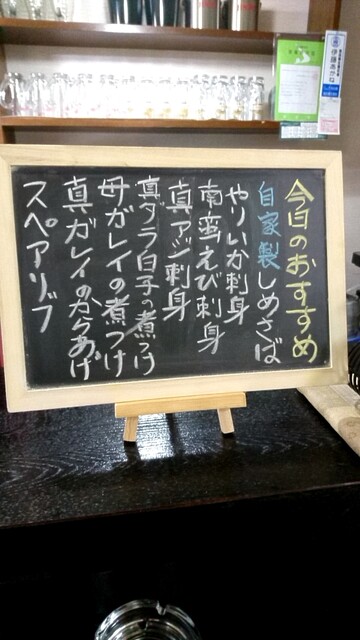 今日のおすすめ
自家製しめさば
やりいか刺身
南蛮えび刺身
真アジ刺身
真ダラ白子の煮つけ
母ガレイの煮つけ
真ガレイのからあげ
スペアリブ